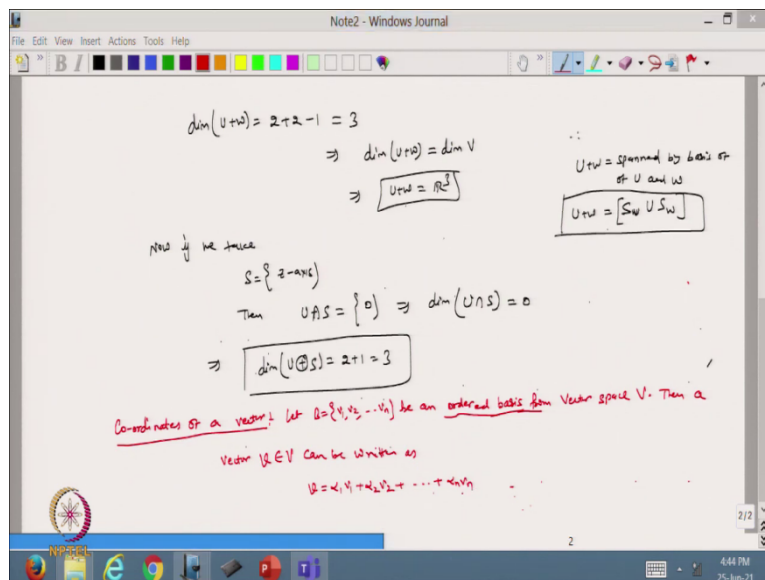 Note2 - Windows Journal
File Edit View Insert Actions Tools Help
B I
dim(U+W) = 2+2-1 = 3
⇒ dim(U+W) = dim V
⇒ U+W = ℝ³
∴
U+W = spanned by basis of
of U and W
U+W = [Sw U Sw]
Now if we take
S = { z-axis)
Then U∩S = {0) ⇒ dim(U∩S) = 0
⇒ dim(U⊕S) = 2+1 = 3
Co-ordinates of a vector: Let B = {v₁, v₂, ... vₙ} be an ordered basis from Vector space V. Then a
vector v ∈ V can be written as
v = α₁v₁ + α₂v₂ + ... + αₙvₙ
NPTEL
2/2
2
4:44 PM
25-Jun-21